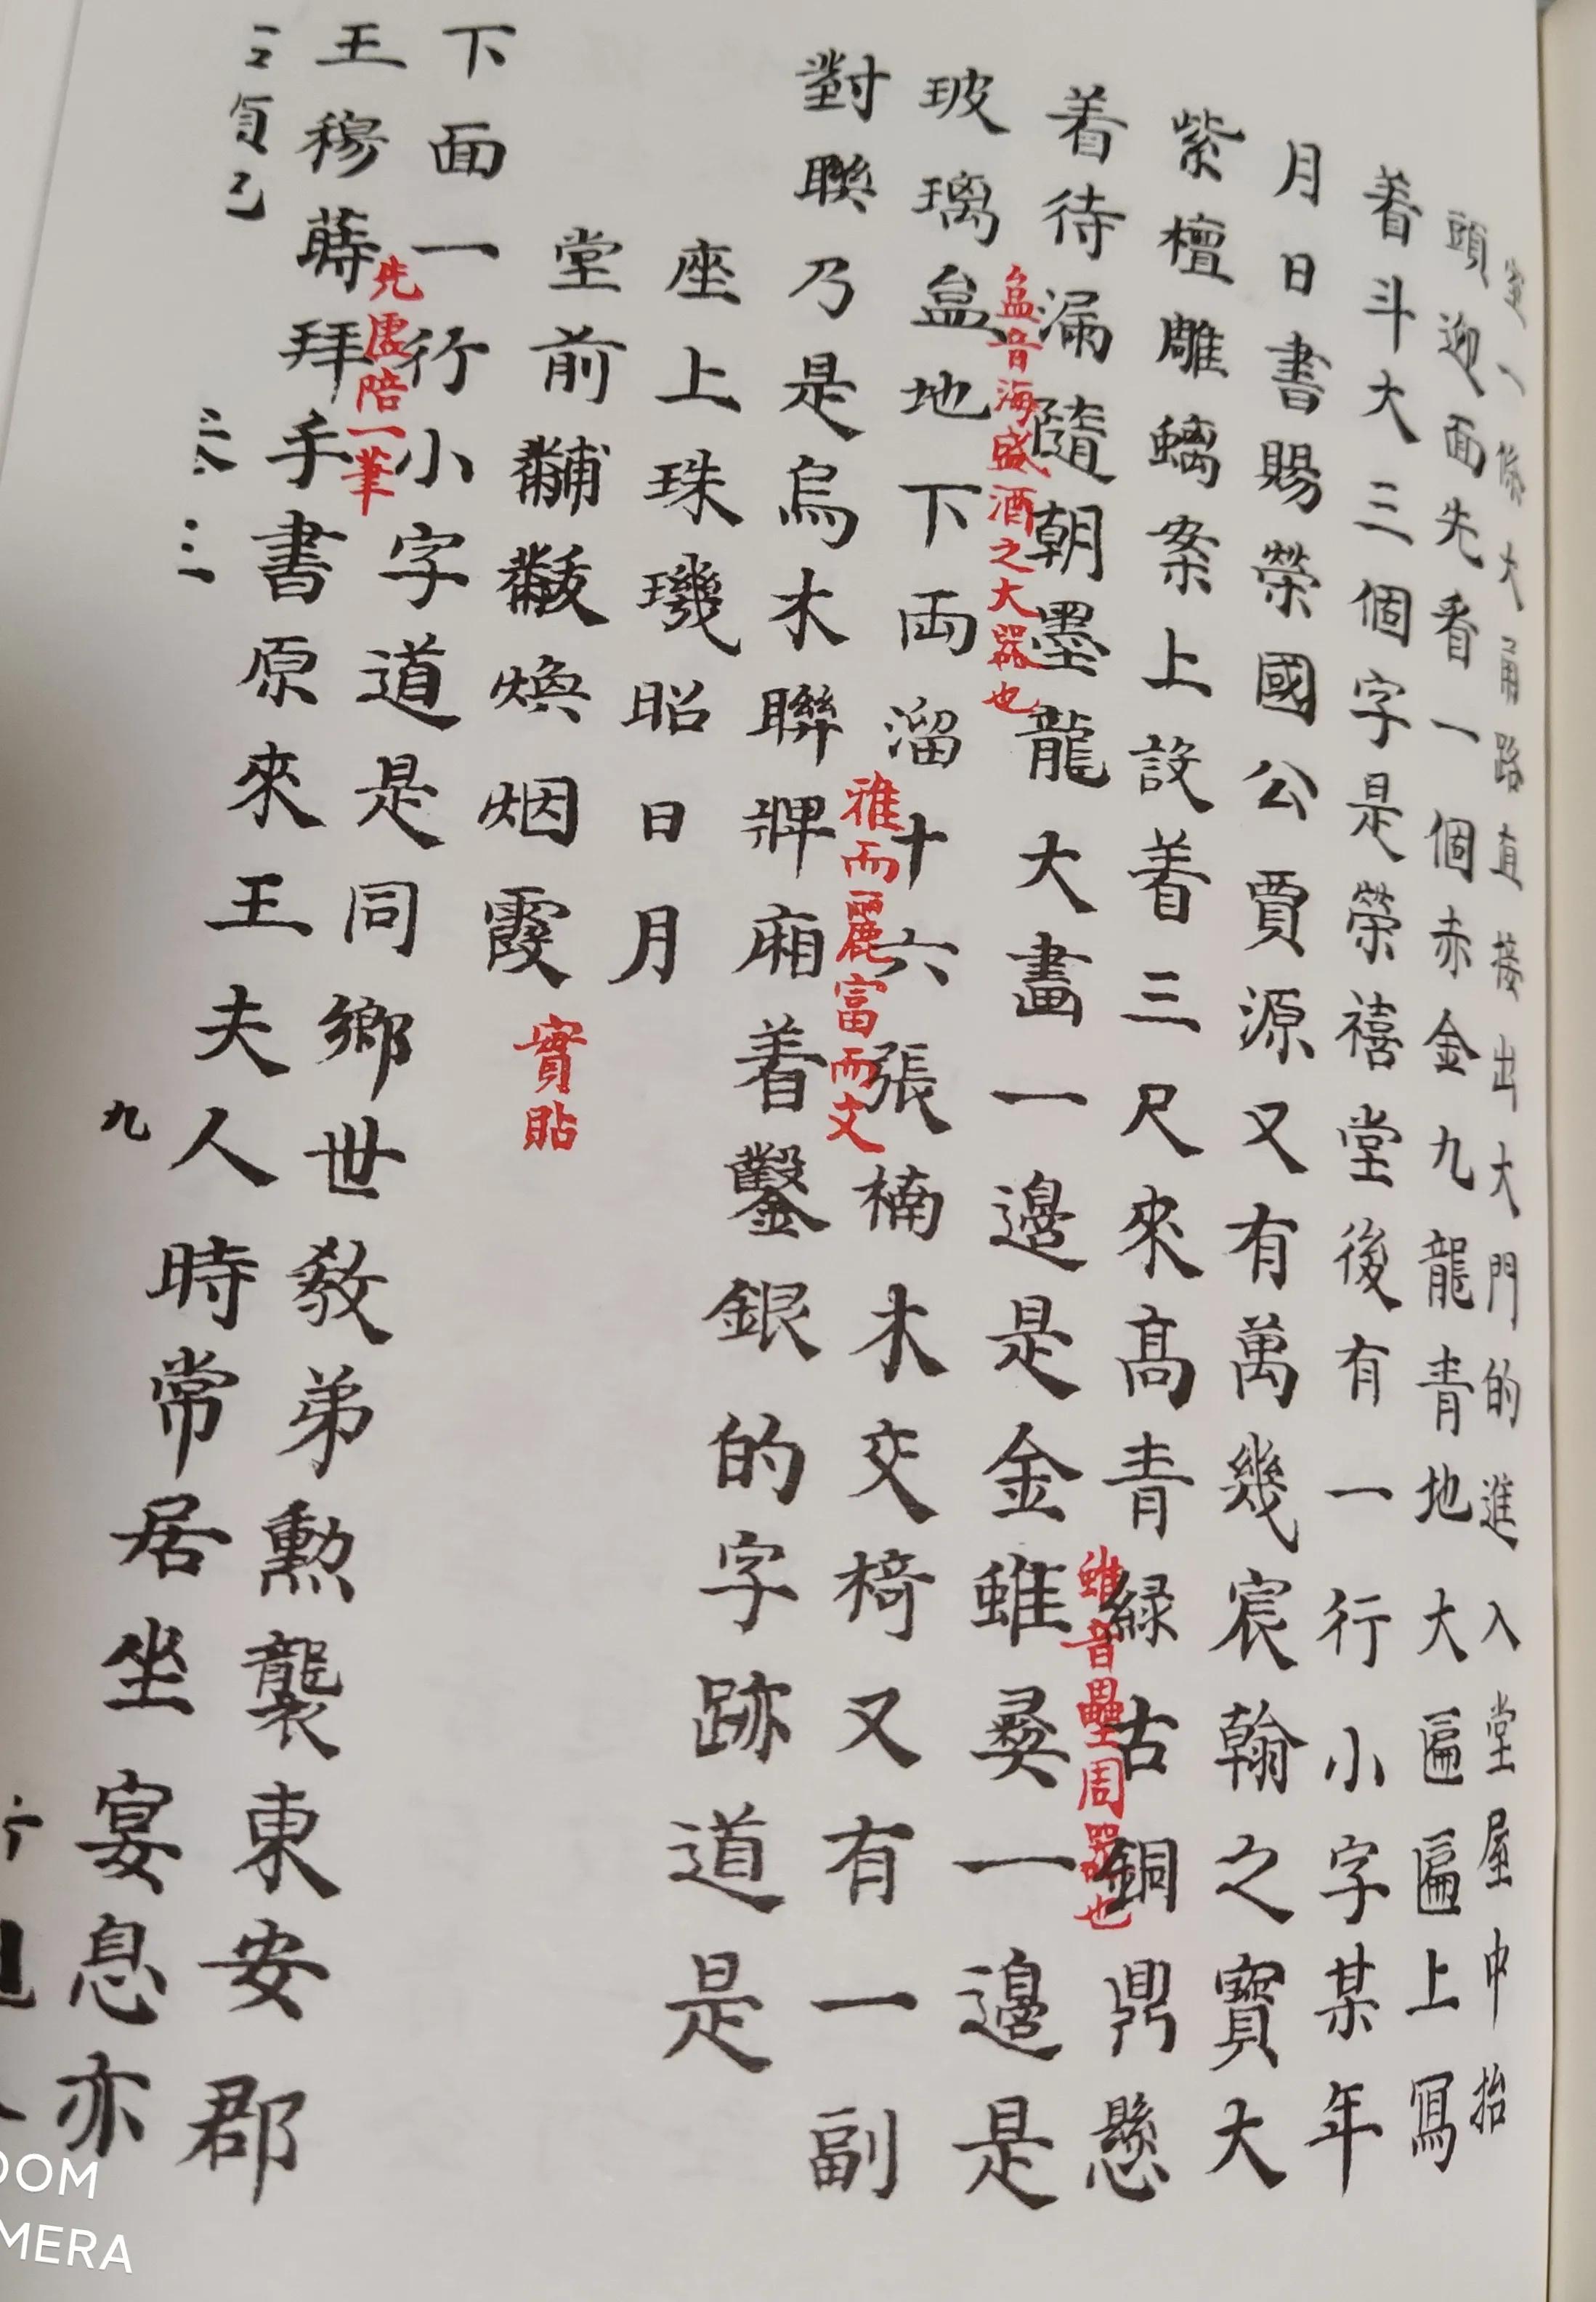 一條大甬路直接出大門的進入堂屋中抬
頭迎面先看一個赤金九龍青地大匾匾上寫
着斗大三個字是榮禧堂後有一行小字某年
月日書賜榮國公賈源又有萬幾宸翰之寶大
紫檀雕螭案上設着三尺來高青緑古銅鼎懸
着待漏隨朝墨龍大畫一邊是金蜼彝一邊是
蜼音壘周器也
玻璃盒地下両溜十六張楠木交椅又有一副
盒音海盛酒之大器也
對聯乃是烏木聯牌廂着鑿銀的字跡道是
雅而麗富而文
座上珠璣昭日月
堂前黼黻煥烟霞
實貼
下面一行小字道是同鄉世教弟勲襲東安郡
王穆蒔拜手書原來王夫人時常居坐宴息亦
先虛陪一筆
九
OOM
MERA